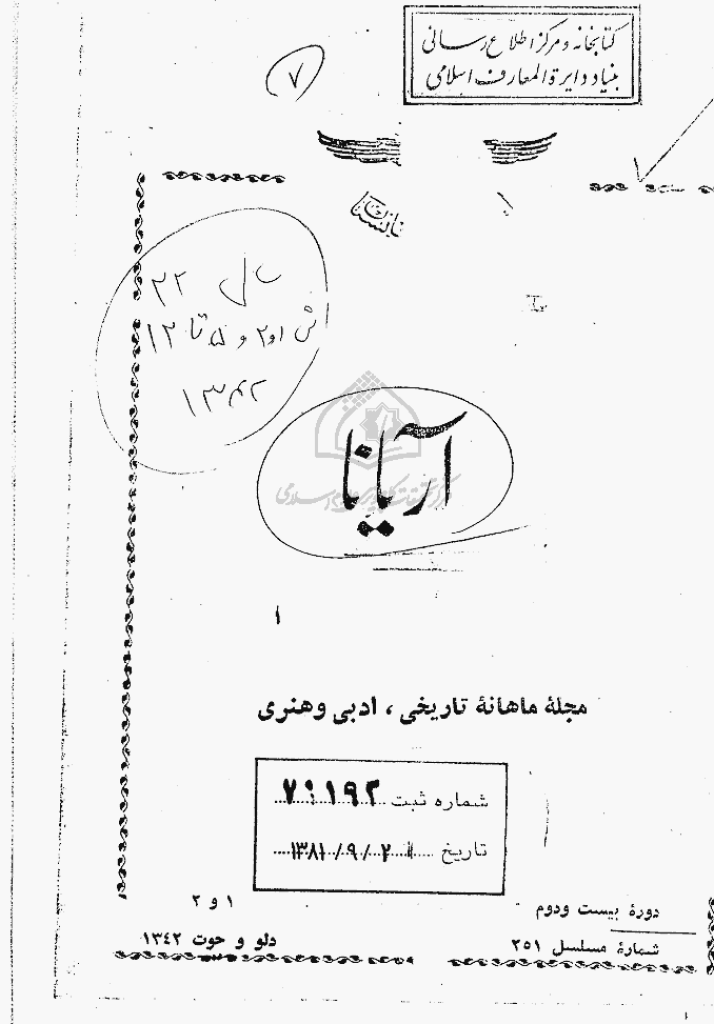 کتابخانه و مرکز اطلاع رسانی
بنیاد دایرة المعارف اسلامی
۷
سال ۲۲
ش ۱و۲ و ۵ تا ۱۲
۱۳۴۲
آریانا
مجلهٔ ماهانهٔ تاریخی ، ادبی وهنری
شماره ثبت
تاریخ
۱ و ۲
دورهٔ بیست ودوم
دلو و حوت ۱۳۴۲
شمارهٔ مسلسل ۲۵۱